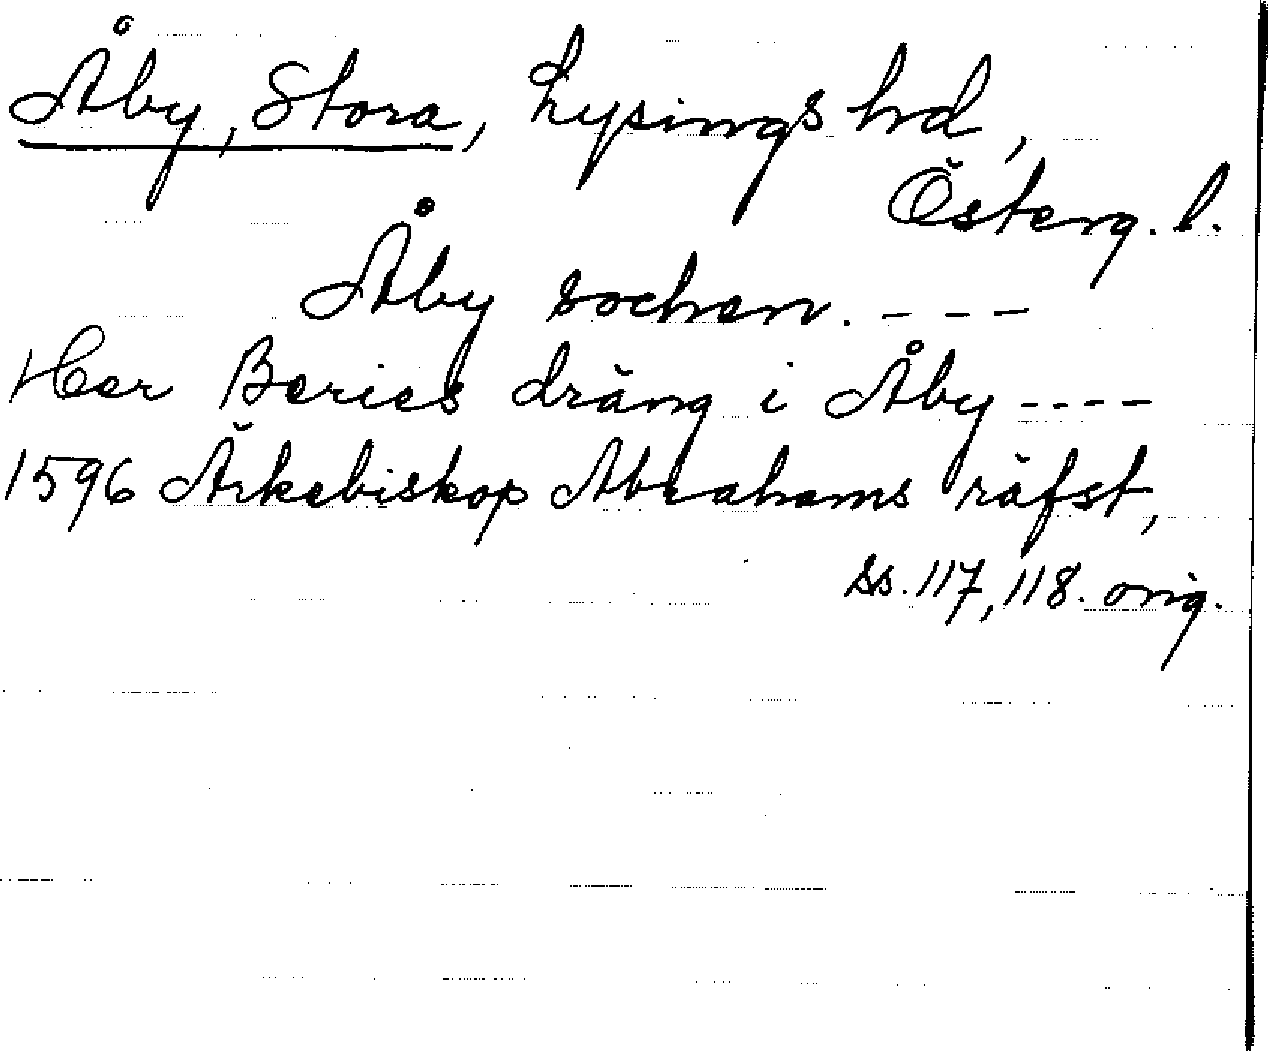 Åby, Stora, Lysings hd,
Österg. l.
Åby sochen. - - -
Her Beries dräng i Åby - - - -
1596 Ärkebiskop Abrahams räfst,
ss. 117, 118. orig.